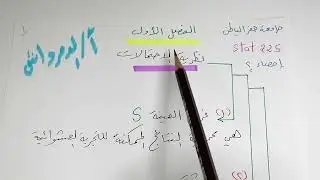 جامعة حفر الباطن
Stat 225
إحصاء ؟
الفصل الأول
نظرية الاحتمالات
أ/الدمرداش
(١) فراغ العينة S
هي مجموعة النتائج الممكنة للتجربة العشوائية